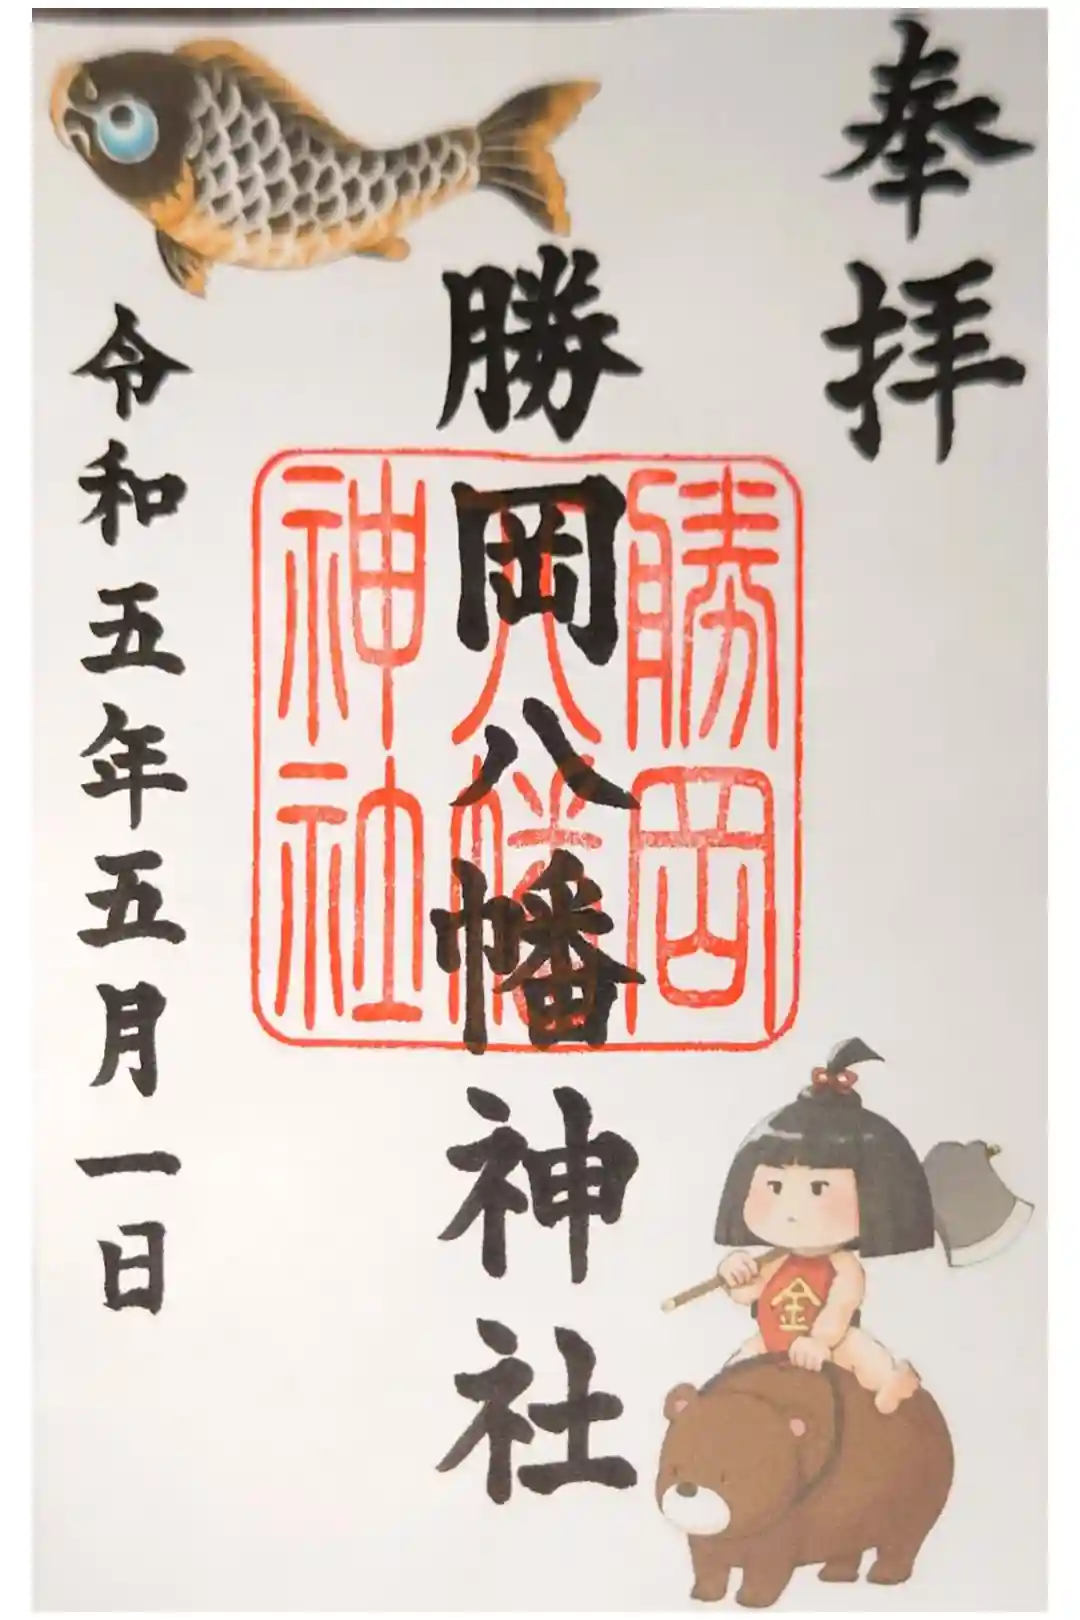 奉拝
勝岡八幡神社
勝岡
八幡
神社
令和五年五月一日
金